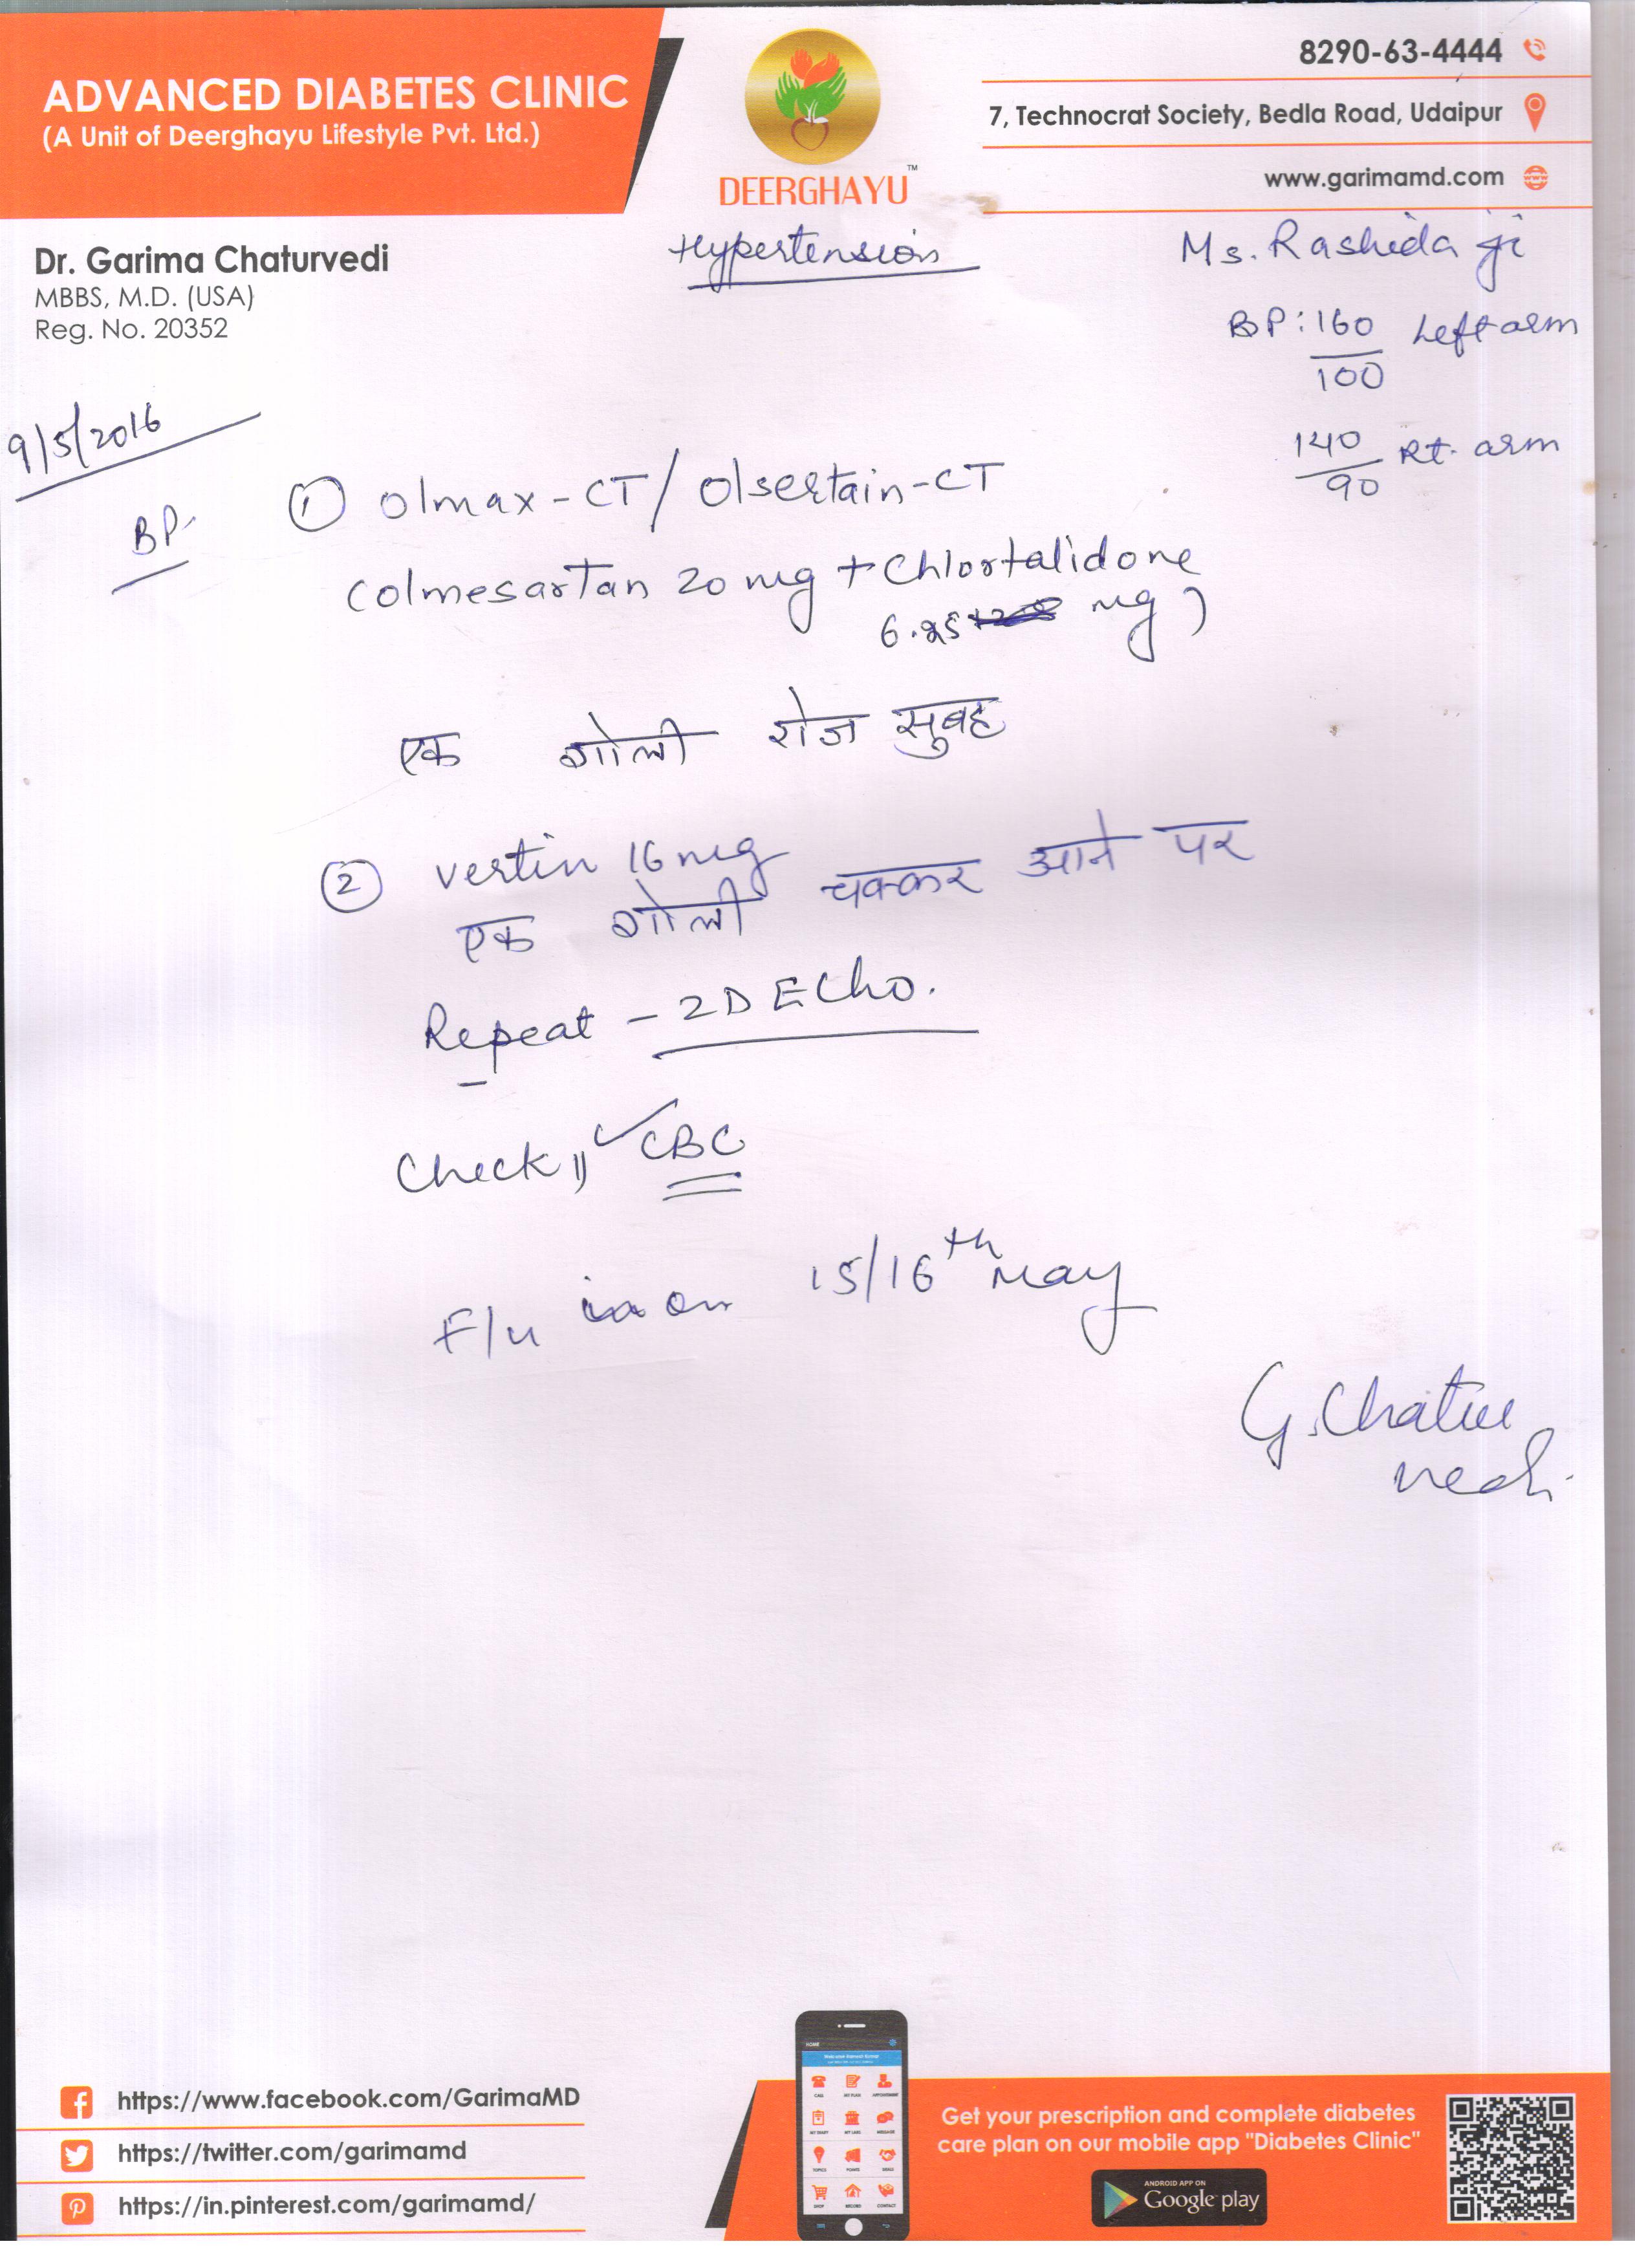 ADVANCED DIABETES CLINIC
(A Unit of Deerghayu Lifestyle Pvt. Ltd.)
DEERGHAYU™
8290-63-4444
7, Technocrat Society, Bedla Road, Udaipur
www.garimamd.com
Dr. Garima Chaturvedi
MBBS, M.D. (USA)
Reg. No. 20352
Hypertension
Ms. Rashida ji
BP: 160/100 Left arm
140/90 Rt. arm
9/5/2016
BP
① Olmax-CT / Olsertain-CT
(Olmesartan 20 mg + Chlortalidone
6.25 mg)
एक गोली रोज सुबह
② Vertin 16 mg
एक गोली चक्कर आने पर
Repeat - 2D Echo.
Check CBC
F/u on 15/16th May
G. Chaturvedi
https://www.facebook.com/GarimaMD
https://twitter.com/garimamd
https://in.pinterest.com/garimamd/
HOME
CALL MY PLAN APPOINTMENT
MY DIARY MY LABS MESSAGE
TOPICS POINTS DEALS
SHOP RECORD CONTACT
Get your prescription and complete diabetes
care plan on our mobile app "Diabetes Clinic"
ANDROID APP ON
Google play